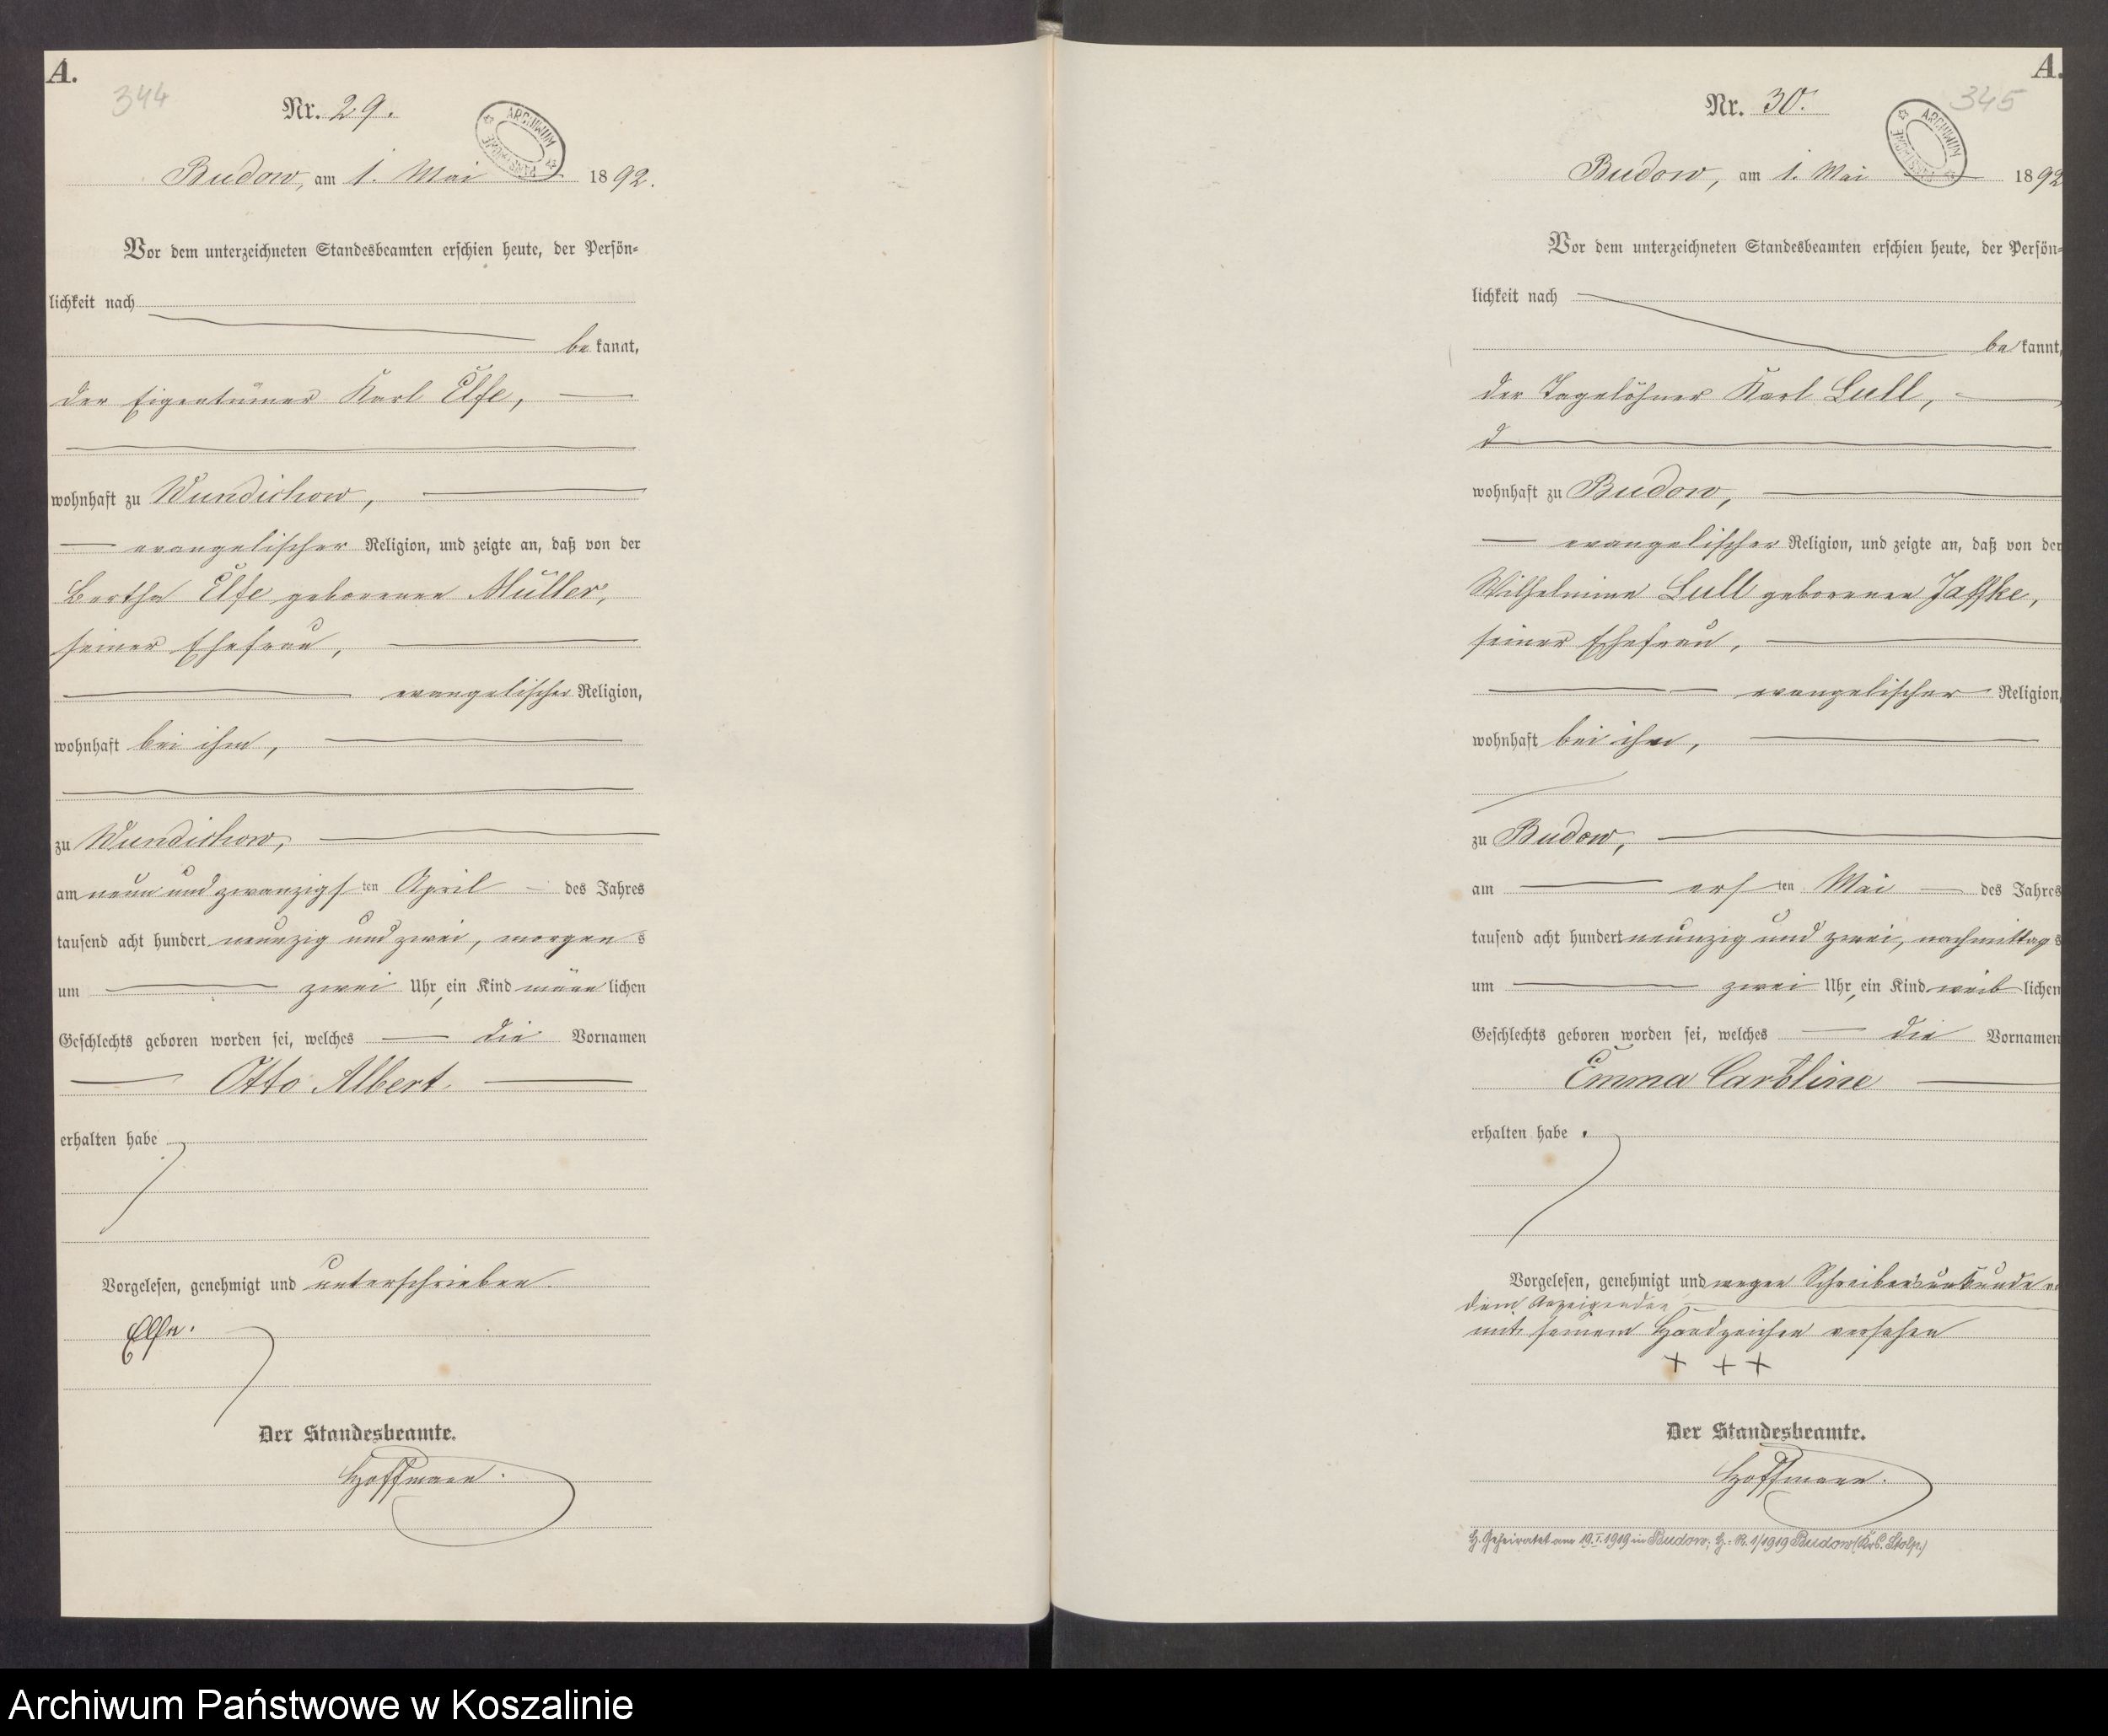 A.
344
Nr. 29.
ARCHIWUM
Budow, am 1. Mai 1892.
Vor dem unterzeichneten Standesbeamten erschien heute, der Persön-
lichkeit nach
be kannt,
der Eigentümer Karl Elfe,
wohnhaft zu Wundichow,
evangelischer Religion, und zeigte an, daß von der
Bertha Elfe geborenen Müller,
seiner Ehefrau,
evangelischer Religion,
wohnhaft bei ihm,
zu Wundichow,
am neun und zwanzigsten April des Jahres
tausend acht hundert neunzig und zwei, morgens
um zwei Uhr, ein Kind männlichen
Geschlechts geboren worden sei, welches die Vornamen
Otto Albert
erhalten habe
Vorgelesen, genehmigt und unterschrieben.
Elfe.
Der Standesbeamte.
Hoffmann.
A.
345
Nr. 30.
ARCHIWUM
Budow, am 1. Mai 1892
Vor dem unterzeichneten Standesbeamten erschien heute, der Persön-
lichkeit nach
be kannt,
der Tagelöhner Karl Lull,
d
wohnhaft zu Budow,
evangelischer Religion, und zeigte an, daß von der
Wilhelmine Lull geborenen Jaffke,
seiner Ehefrau,
evangelischer Religion,
wohnhaft bei ihm,
zu Budow,
am ersten Mai des Jahres
tausend acht hundert neunzig und zwei, nachmittags
um zwei Uhr, ein Kind weiblichen
Geschlechts geboren worden sei, welches die Vornamen
Emma Caroline
erhalten habe.
Vorgelesen, genehmigt und wegen Schreibensunkunde
dem Anzeigenden
mit seinem Handzeichen versehen
+ + +
Der Standesbeamte.
Hoffmann.
H. Geheiratet am 19.I.1919 in Budow; H.-R. 1/1919 Budow (Krs. Stolp.)
Archiwum Państwowe w Koszalinie